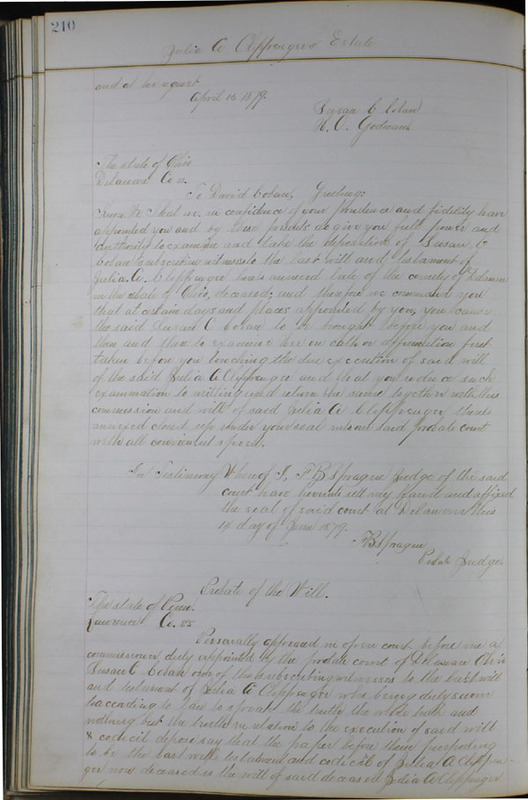 210
Julia A Clippengers Estate
and at her request
April 15 1879.
Susan C Colan
H. C. Godman
The State of Ohio
Delaware Co ss.
To David Colan, Greeting:
Know Ye that we, in confidence of your Prudence and fidelity have
appointed you and by these presents do give you full power and
authority to examine and take the deposition of Susan C
Colan subscribing witness to the last will and testament of
Julia A. Clippenger hereto annexed late of the county of Delaware
in the state of Ohio, deceased; and therefore we command you
that at certain days and places appointed by you, you cause
the said Susan C Colan to be brought before you and
then and there to examine her on oath or affirmation first
taken before you touching the due execution of said will
of the said Julia A Clippenger and that you reduce such
examination to writing and return the same together with this
commission and will of said Julia A Clippenger thereto
annexed closed up under your seal into our said probate court
with all convenient speed.
In Testimony Whereof I, F B Sprague Judge of the said
court have hereunto set my Hand and affixed
the seal of said court at Delaware this
14 day of June 1879.
F B Sprague
Probate Judge.
Probate of the Will.
The State of Penn.
Lawrence Co. ss
Personally appeared in open court before me a
commissioner duly appointed by the probate court of Delaware Ohio
Susan C Colan one of the subscribing witnesses to the last will
and testament of Julia A Clippenger who being duly sworn
according to law to speak the truth the whole truth and
nothing but the truth in relation to the execution of said will
& codicil depose say that the paper before them purporting
to be the last will testament and codicil of Julia A Clippen-
ger now deceased is the will of said deceased Julia A Clippenger